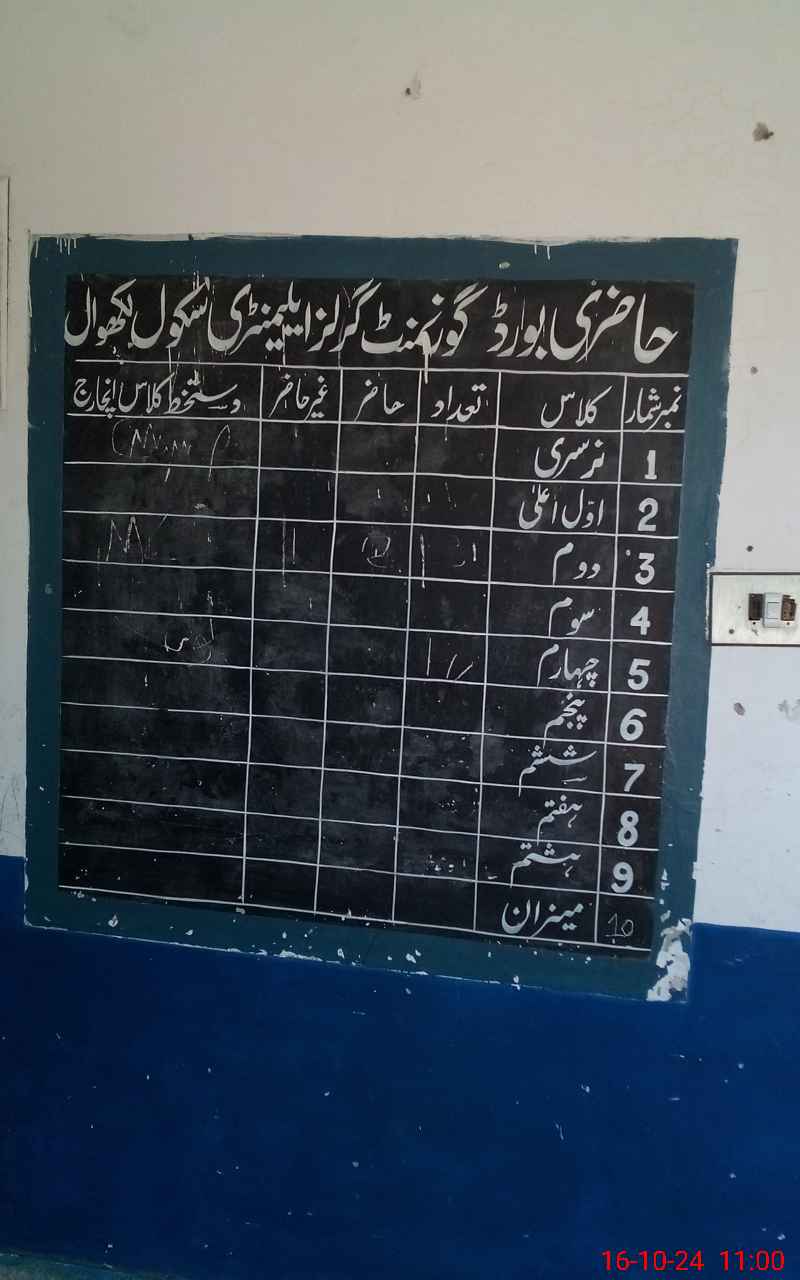 حاضری بورڈ گورنمنٹ گرلز ایلیمنٹری سکول لکھوال
نمبر شمار کلاس تعداد حاضر غیر حاضر دستخط کلاس انچارج
1 نرسری
2 اوّل اعلیٰ
3 دوم
4 سوم
5 چہارم
6 پنجم
7 ششم
8 ہفتم
9 ہشتم
10 میزان
16-10-24 11:00